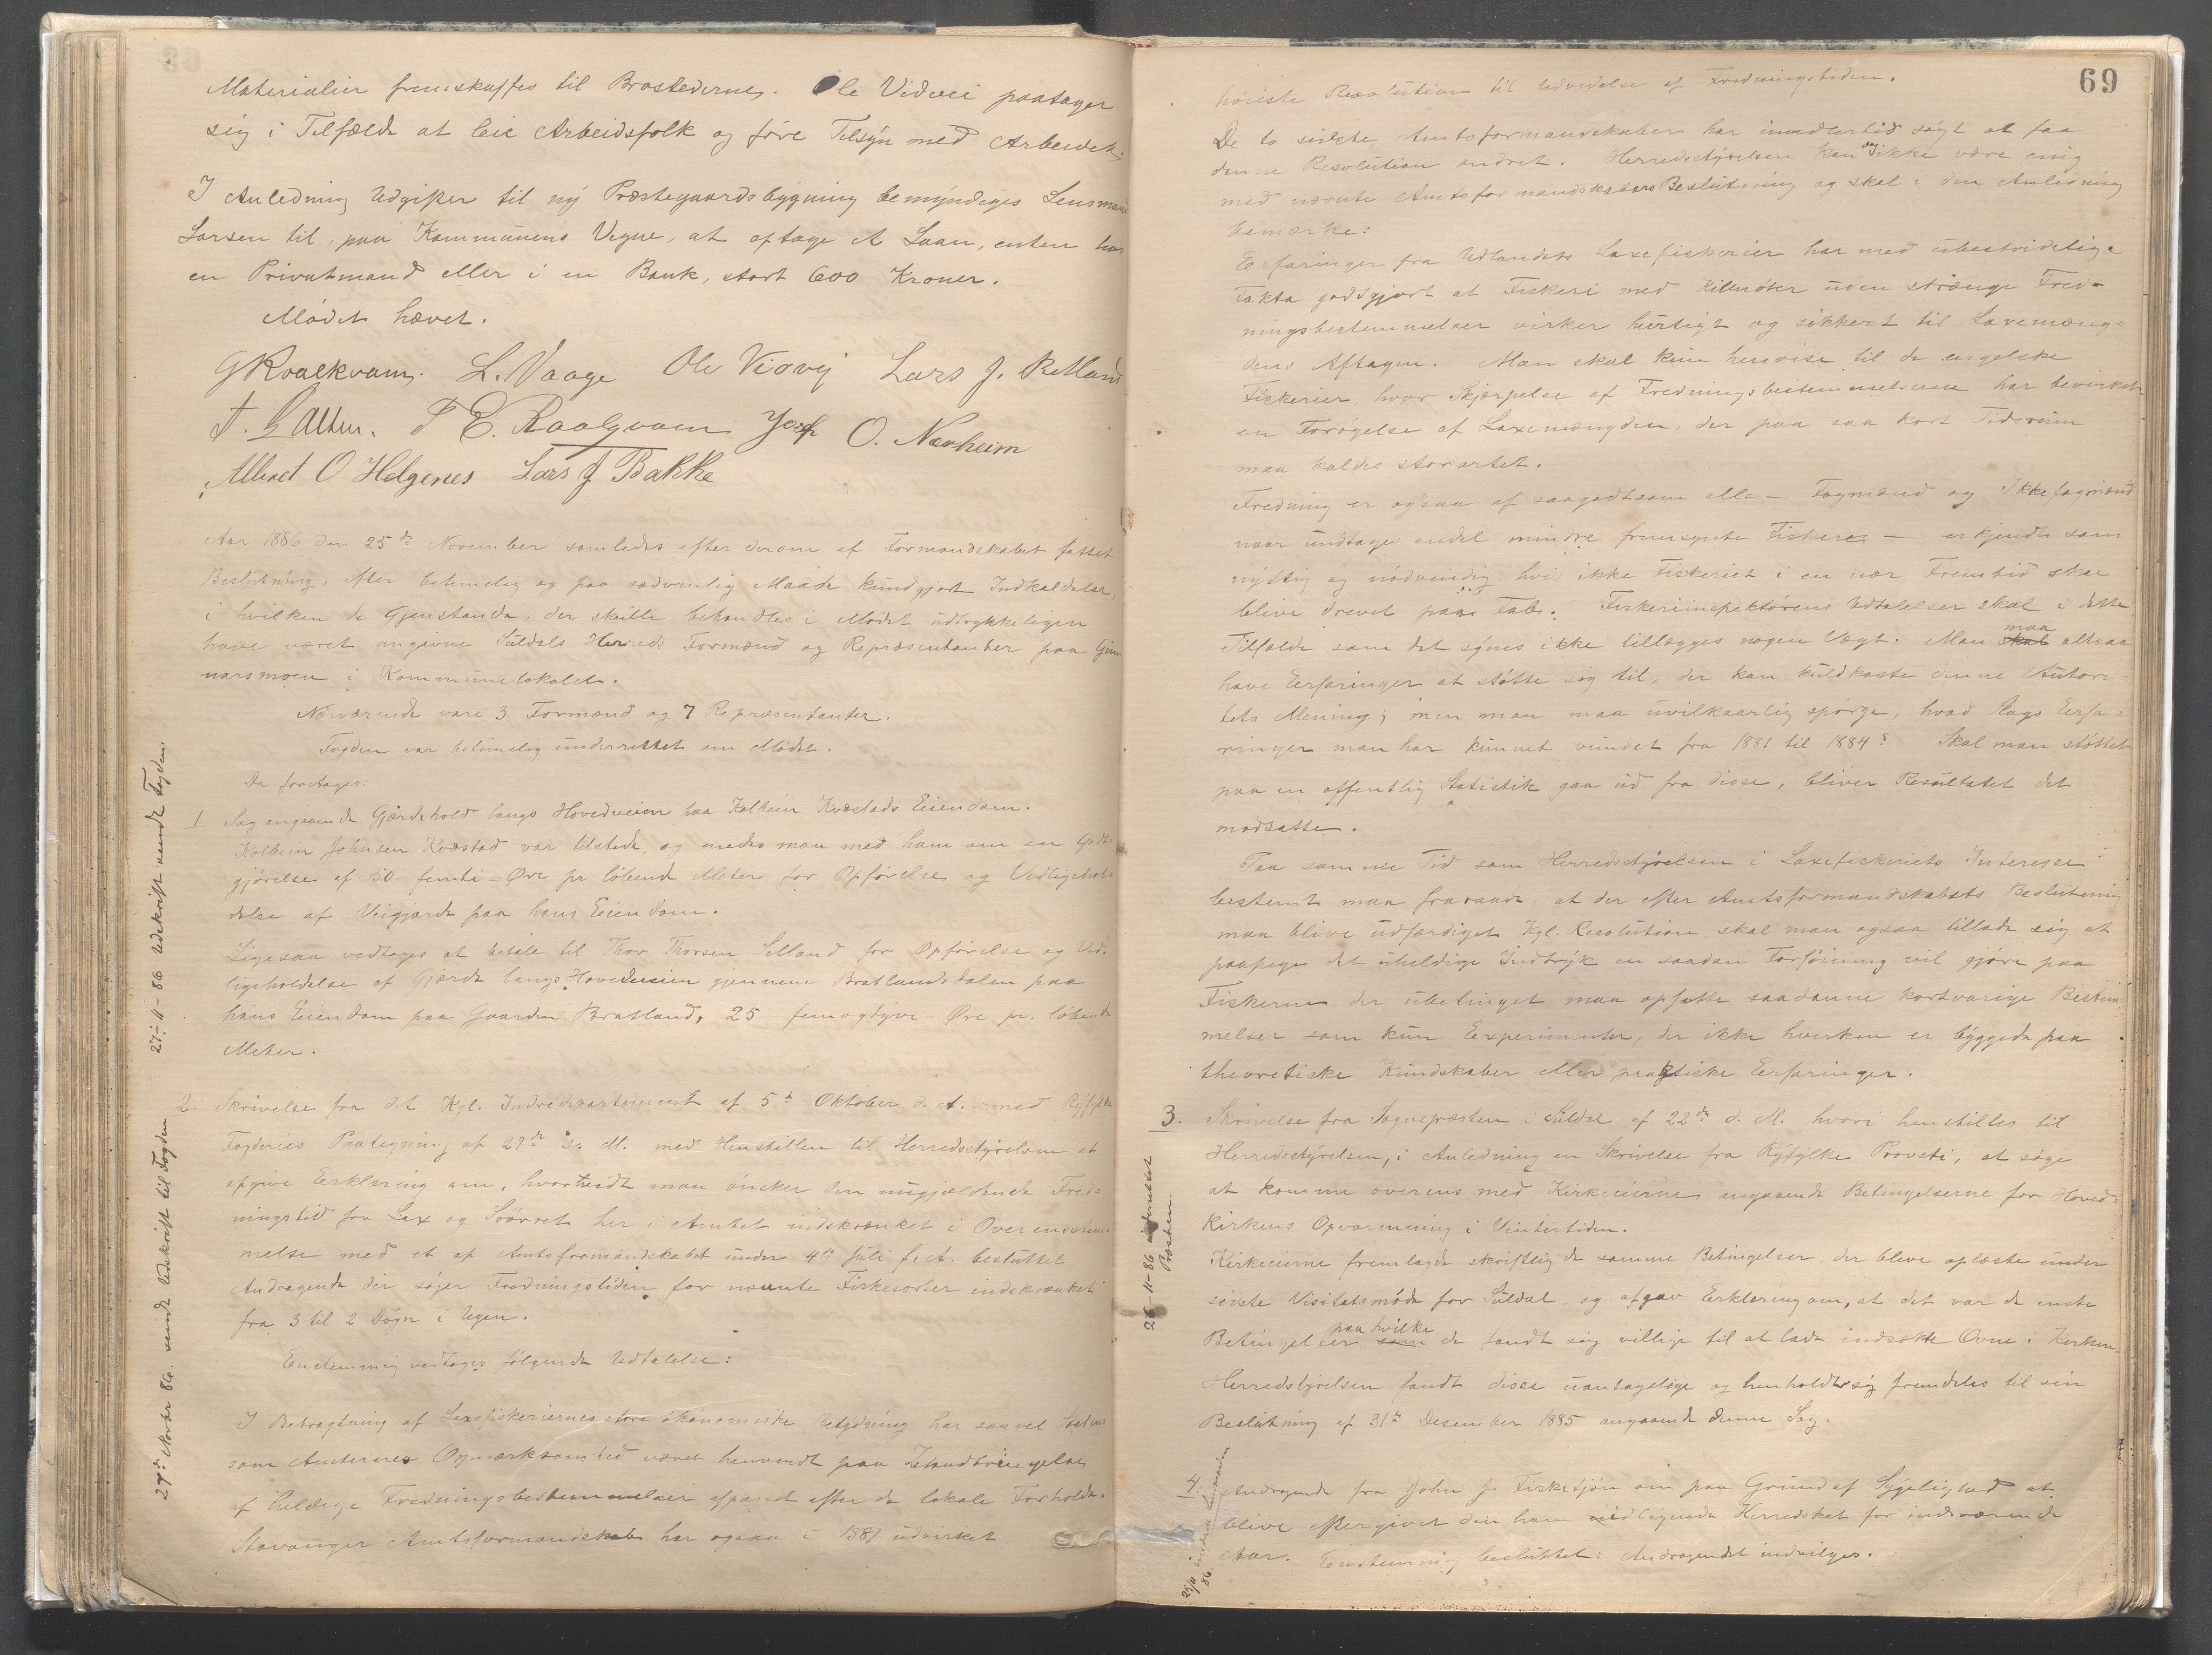 Materialier fremskaffes til Brostederne. Ole Vidvei paatager
sig i Tilfælde at leie Arbeidsfolk og føre Tilsyn med Arbeidet.
I Anledning Udgifter til ny Præstegaardsbygning bemyndiges Lensmand
Larsen til, paa Kommunens Vegne, at optage et Laan, enten hos
en Privatmand eller i en Bank, stort 600 Kroner.
Mødet hævet.
G Roalkvam. L. Vaage Ole Lars J.
T. E. Roalqvam O. Nærheim
O Helgenes Lars J Bakke
Aar 1886 den 25de November samledes efter derom af Formandskabet fattet
Beslutning, efter betimelig og paa sædvanlig Maade kundgjort Indkaldelse,
i hvilken de Gjenstande, der skulle behandles i Mødet udtrykkeligen
have været angivne Suldals Herreds Formænd og Repræsentanter paa Gun
narsmoen i Kommunelokalet.
Nærværende vare 3 Formænd og 7 Repræsentanter.
Fogden var betimelig underrettet om Mødet.
Da foretages:
1 Sag angaaende Gjærdehold langs Hovedveien paa Kolbein Kvæstads Eiendom.
Kolbein Johnsen Kvæstad var tilstede, og enedes man med ham om en Godt-
gjørelse af 50 femti Øre pr løbende Meter for Opførelse og Vedligehol-
delse af Veigjærde paa hans Eiendom.
Ligesaa vedtoges at betale til Thor Thorsen Selland for Opførelse og Ved-
ligeholdelse af Gjærde langs Hovedveien gjennem Bratlandsdalen paa
hans Eiendom paa Gaarden Bratland, 25 femogtyve Øre pr. løbende
Meter.
2. Skrivelse fra det Kgl. Indredepartement af 5te Oktober d. A. med Ryfylke
Fogderies Paategning af 27de s. M. med Henstillen til Herredsstyrelsen at
afgive Erklæring om, hvorvidt man ønsker den nugjældende Fred-
ningstid for Lax og Søørret her i Amtet indskrænket i Overensstem-
melse med et af Amtsformandskabet under 4de Juli f. A. besluttet
Andragende der søger Fredningstiden for nævnte Fiskesorter indskrænket
fra 3 til 2 Døgn i Ugen.
Enstemmig vedtoges følgende Udtalelse:
I Betragtning af Laxefiskeriernes store økonomiske Betydning har saavel Statens
som Amternes Opmærksomhed været henvendt paa
af heldige Fredningsbestemmelser afpasset efter de lokale Forholde.
Stavanger Amtsformandskab har ogsaa i 1881 udvirket
27-11-86 Udskrift sendt Fogden.
27de Novbr 86. sendt Udskrift til Fogden
69
høieste Resolution til Udvidelse af Fredningstiden.
De to sidste Amtsformandskaber har imidlertid søgt at faa
denne Resolution ændret. Herredsstyrelsen kan ikke være enig
med nævnte Amtsformandskabers Beslutning og skal i den Anledning
bemærke:
Erfaringer fra Udlandets Laxefiskerier har med ubestridelige
Fakta godtgjort at Fiskeri med Kilenøter uden strænge Fred-
ningsbestemmelser virker hurtigt og sikkert til Laxemæng-
dens Aftagen. Man skal kun henvise til de engelske
Fiskerier, hvor Skjærpelse af Fredningsbestemmelserne har bevirket
en Forøgelse af Laxemængden, der paa saa kort Tidsrum
maa kaldes storartet.
Fredning er ogsaa af saagodtsom alle – Fagmænd og Ikkefagmænd
naar undtages endel mindre fremsynte Fiskere – erkjendt som
nyttig og nødvendig hvis ikke Fiskeriet i en nær Fremtid skal
blive drevet paa Tab. Fiskeriinspektørens Udtalelser skal i dette
Tilfælde som det synes ikke tillægges nogen Vægt. Man skal maa altsaa
have Erfaringer at støtte sig til, der kan kuldkaste denne Autori-
tets Mening; men man maa uvilkaarlig spørge, hvad Slags Erfa-
ringer man har kunnet vundet fra 1881 til 1884? Skal man støttet
paa en offentlig Statistik gaa ud fra disse, bliver Resultatet det
modsatte.
Paa samme Tid som Herredsstyrelsen i Laxefiskeriets Interesse
bestemt maa fraraade, at der efter Amtsformandskabets Beslutning
maa blive udfærdiget Kgl. Resolution, skal man ogsaa tillade sig at
paapege det uheldige Indtryk en saadan Forføining vil gjøre paa
Fiskerne der ubetinget maa opfatte saadanne kortvarige Bestem
melser som kun Experimenter, der ikke hverken er byggede paa
theoretiske Kundskaber eller praktiske Erfaringer.
3. Skrivelse fra Sognepræsten i Suldal af 22de d. M. hvori henstilles til
Herredsstyrelsen, i Anledning en Skrivelse fra Ryfylke Provsti, at søge
at komme overens med Kirkeeierne angaaende Betingelserne for Hoved-
kirkens Opvarmning i Vintertiden.
Kirkeeierne fremlagde skriftlig de samme Betingelser, der bleve oplæste under
sidste Visitatsmøde for Suldal, og afgav Erklæring om, at det var de eneste
Betingelser som paa hvilke de fandt sig villige til at lade indsætte Ovne i Kirken.
Herredsstyrelsen fandt disse uantagelige og henholdt sig fremdeles til sin
Beslutning af 31te Desember 1885 angaaende denne Sag.
4. Andragende fra John J. Fisketjøn om paa Grund af Sygelighed at
blive eftergivet den ham udlignede Herredskat for indeværende
Aar. Enstemmig besluttet: Andragendet indvilges.
26-11-86 underrettet
Præsten.